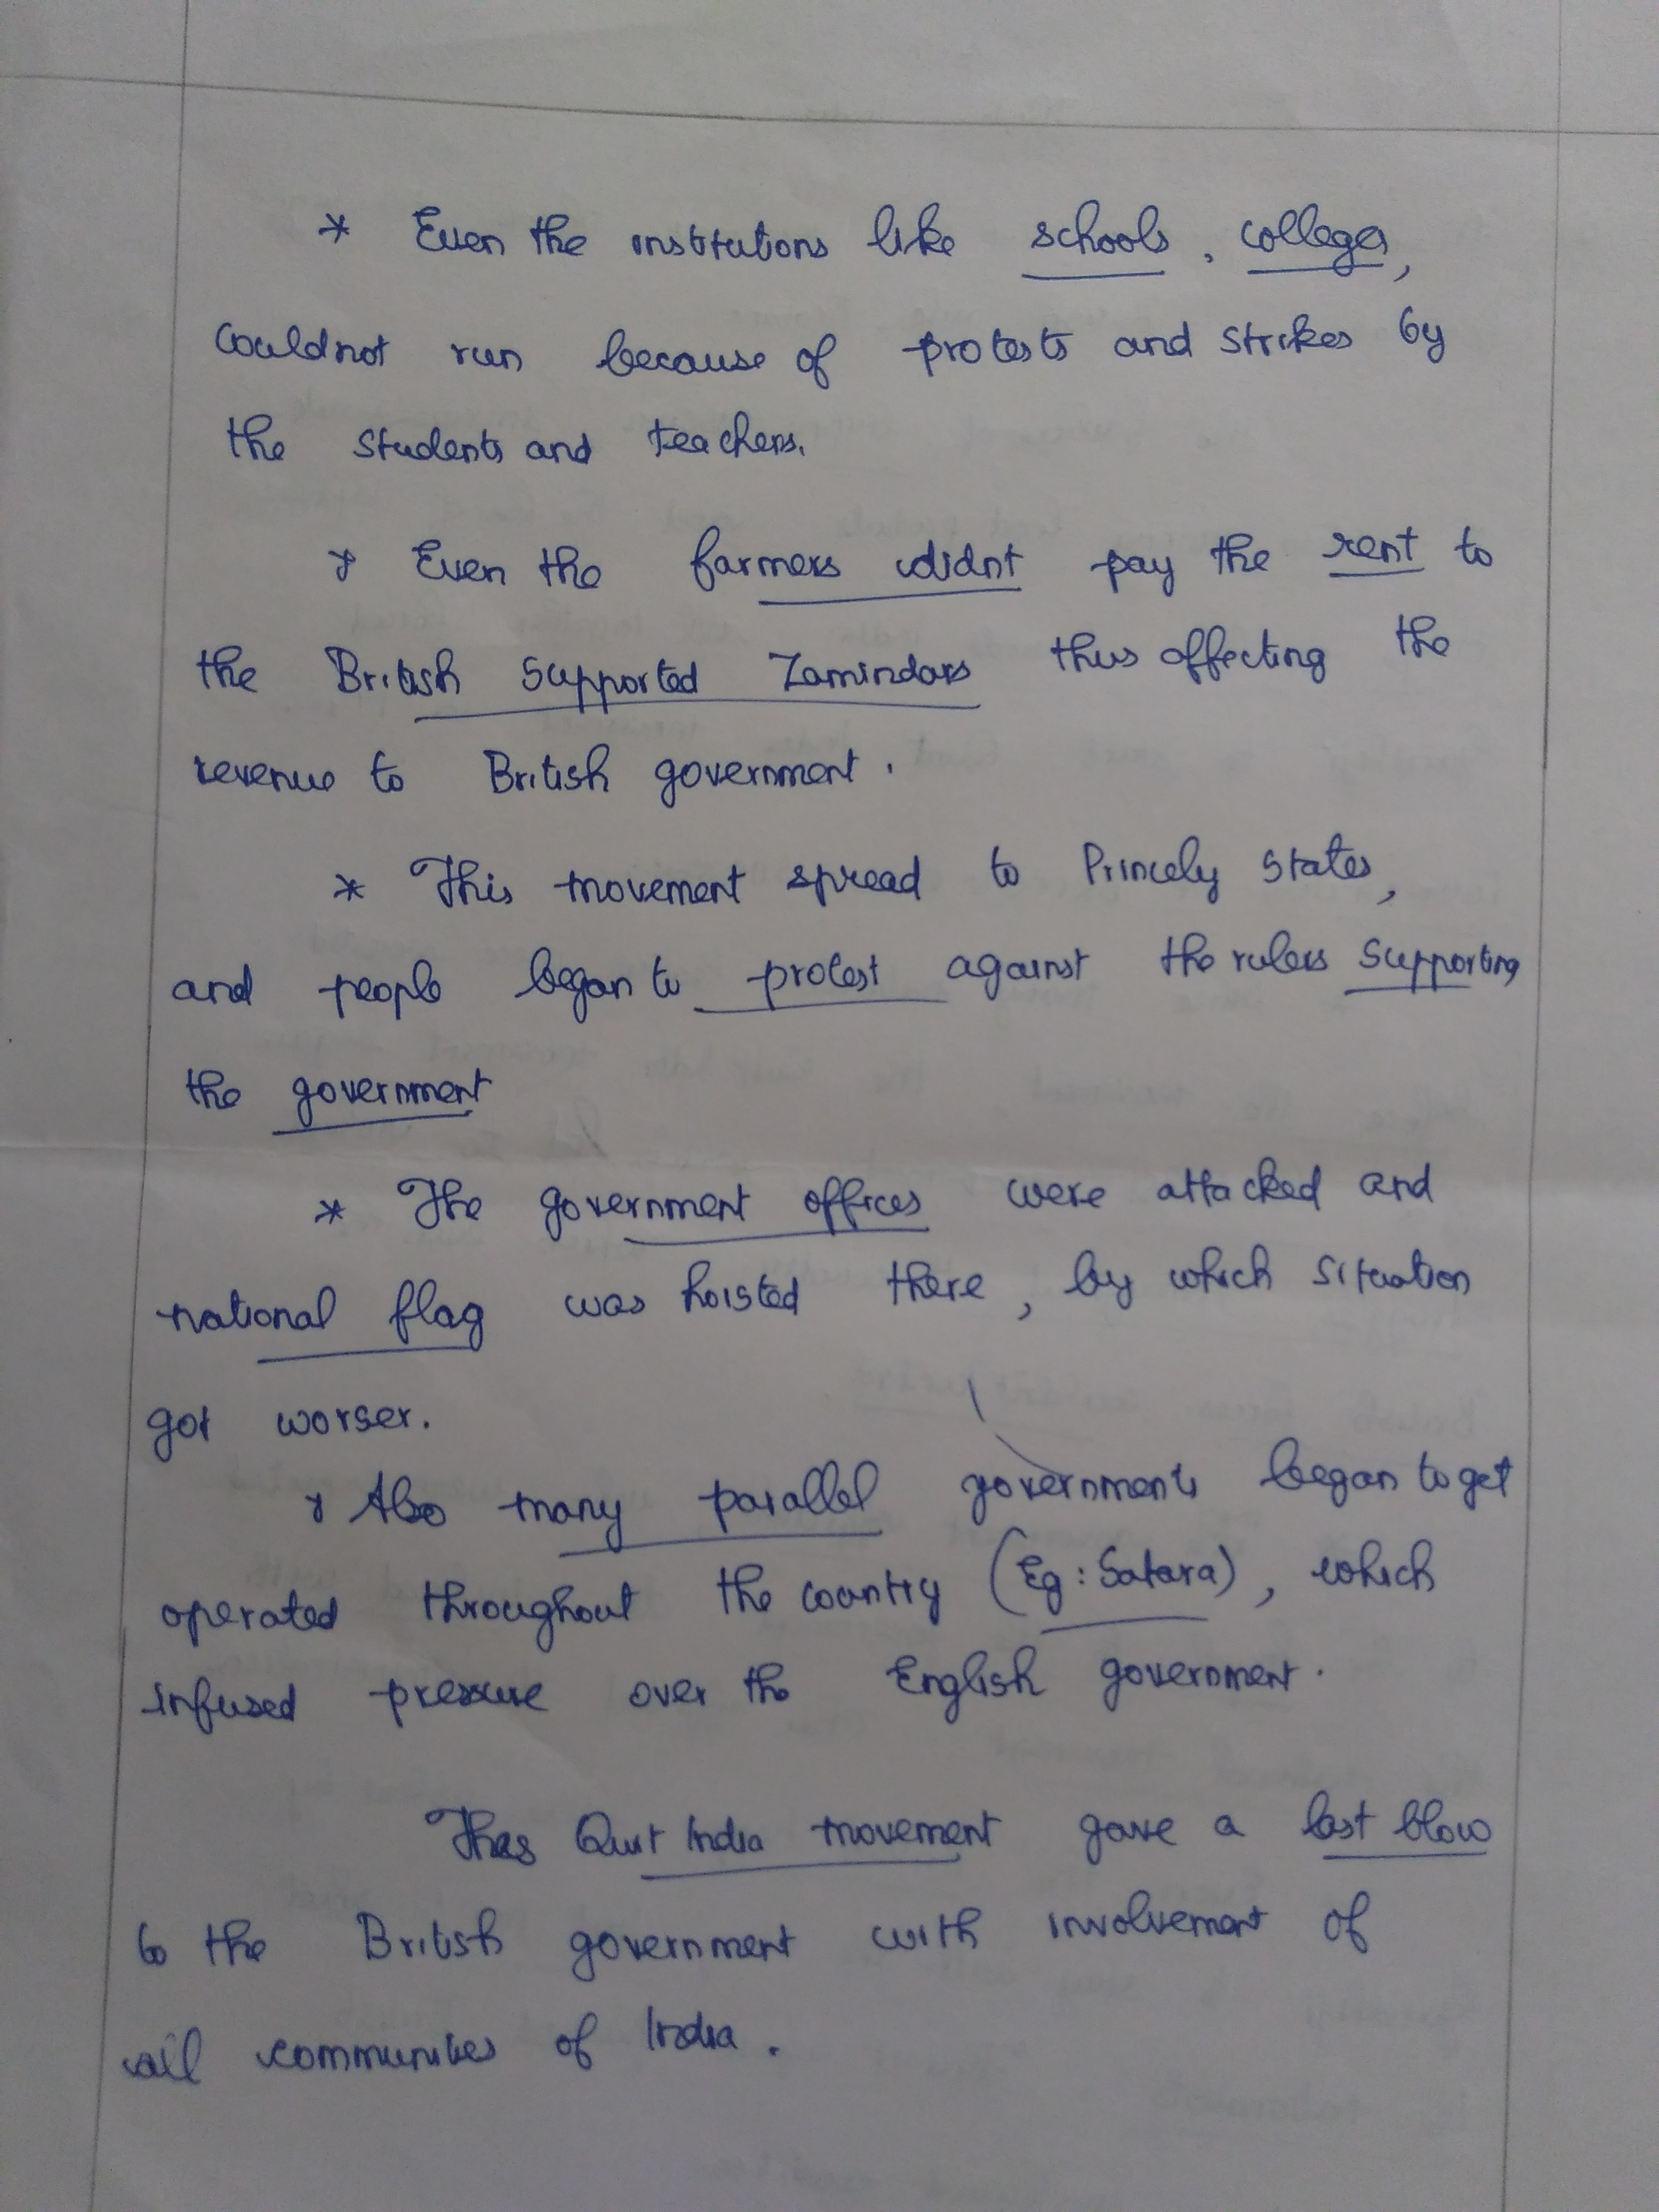 * Even the institutions like schools, colleges,
couldnot run because of protests and strikes by
the students and teachers.
* Even the farmers didnt pay the rent to
the British supported Zamindars thus affecting the
revenue to British government.
* This movement spread to Princely States,
and people began to protest against the rulers supporting
the government
* The government offices were attacked and
national flag was hoisted there, by which situation
got worser.
* Also many parallel governments began to get
operated throughout the country (Eg: Satara), which
infused pressure over the English government.
Thus Quit India movement gave a last blow
to the British government with involvement of
all communities of India.